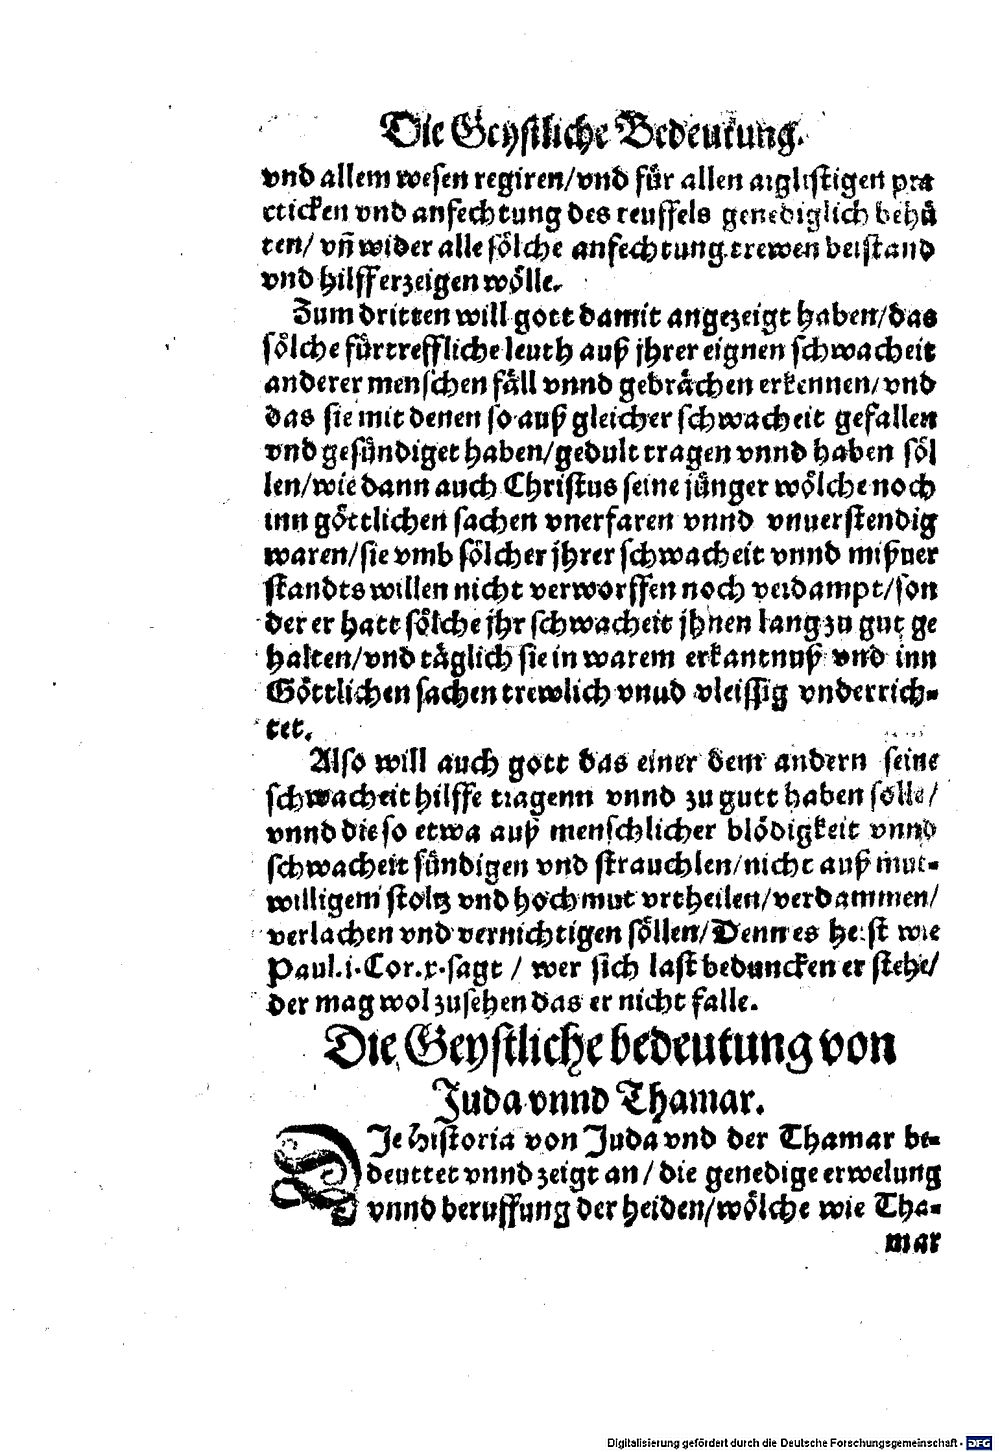 Die Geystliche Bedeutung.
vnd allem wesen regiren/vnd für allen arglistigen pra
cticken vnd anfechtung des teuffels genediglich behü
ten/ vn̄ wider alle sölche anfechtung trewen beistand
vnd hilff erzeigen wölle.
Zum dritten will gott damit angezeigt haben/das
sölche fürtreffliche leuth auß jhrer eignen schwacheit
anderer menschen fäll vnnd gebrächen erkennen/vnd
das sie mit denen so auß gleicher schwacheit gefallen
vnd gesündiget haben/gedult tragen vnnd haben söl
len/wie dann auch Christus seine jünger wölche noch
inn göttlichen sachen vnerfaren vnnd vnuerstendig
waren/sie vmb sölcher jhrer schwacheit vnnd mißuer
standts willen nicht verworffen noch verdampt/son
der er hatt sölche jhr schwacheit jhnen lang zu gut ge
halten/vnd täglich sie in warem erkantnuß vnd inn
Göttlichen sachen trewlich vnud vleissig vnderrich-
tet.
Also will auch gott das einer dem andern seine
schwacheit hilffe tragenn vnnd zu gutt haben sölle/
vnnd die so etwa auß menschlicher blödigkeit vnnd
schwacheit sündigen vnd strauchlen/nicht auß mut-
willigem stoltz vnd hochmut vrtheilen/verdammen/
verlachen vnd vernichtigen söllen/Denn es heist wie
Paul.i.Cor.x.sagt / wer sich last beduncken er stehe/
der mag wol zusehen das er nicht falle.
Die Geystliche bedeutung von
Juda vnnd Thamar.
DIe historia von Juda vnd der Thamar be-
deuttet vnnd zeigt an/ die genedige erwelung
vnnd beruffung der heiden/wölche wie Tha-
mar
Digitalisierung gefördert durch die Deutsche Forschungsgemeinschaft - DFG